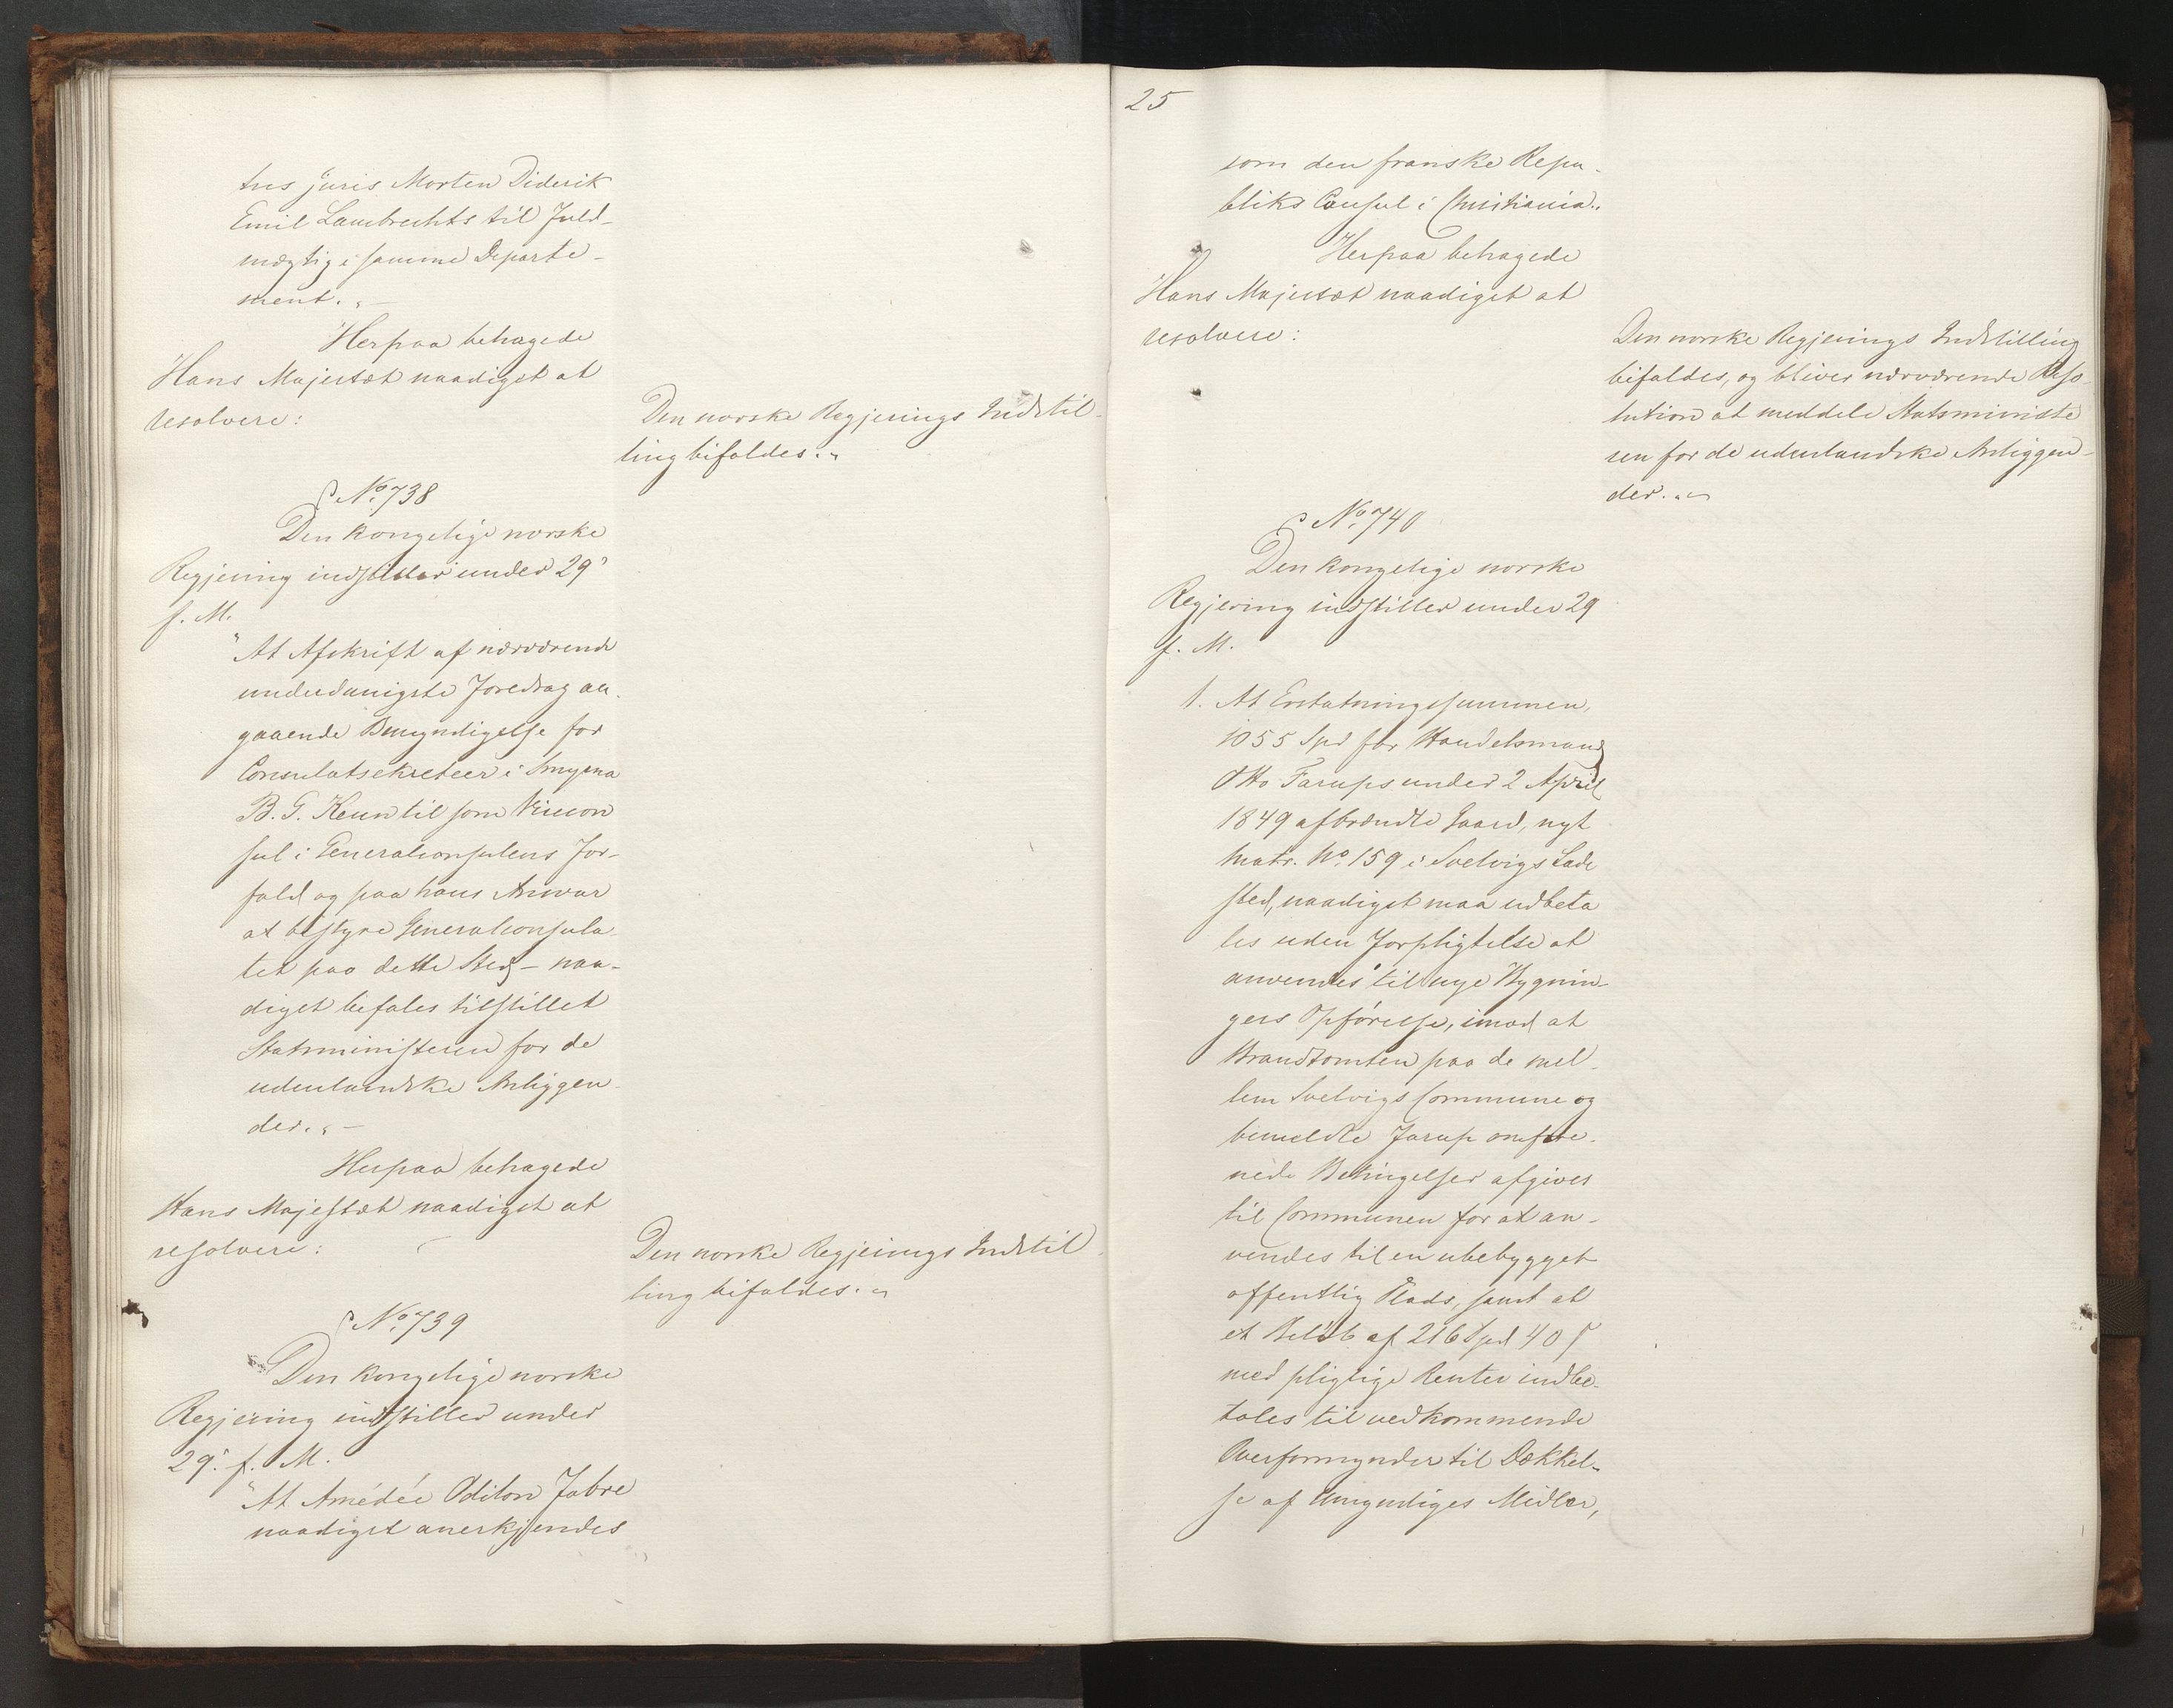 tus juris Morten Diderik
Emil Lambrechts til Fuld-
mægtig i samme Departe-
ment."-
Herpaa behagede
Hans Majestæt naadigst at
resolvere:
Den norske Regjerings Indstil-
ling bifaldes."
No. 738
Den kongelige norske
Regjering indstiller under 29'
f. M.
"At Afskrift af nærværende
underdanigste Foredrag an-
gaaende Bemyndigelse for
Consulatsekreteer i Smyrna
B. G. Keun til som Vicecon
sul i Generalconsulens For-
fald og paa hans Ansvar
at bestyre Generalconsula-
tet paa dette Sted - naa-
digst befales tilstillet
Statsministeren for de
udenlandske Anliggen-
der."-
Herpaa behagede
Hans Majestæt naadigst at
resolvere:
Den norske Regjerings Indstil
ling bifaldes."
No. 739
Den kongelige norske
Regjering indstiller under
29' f. M.
"At Amédée Odilon Fabre
naadigst anerkjendes
25
som den franske Repu-
bliks Consul i Christiania."
Herpaa behagede
Hans Majestæt naadigst at
resolvere:
Den norske Regjerings Indstilling
bifaldes, og bliver nærværende Reso-
lution at meddele Statsministe
ren for de udenlandske Anliggen-
der."
No. 740
Den kongelige norske
Regjering indstiller under 29
f. M.
1. At Erstatningssummen,
1055 Spd for Handelsmand
Otto Farups under 2 April
1849 afbrændte Gaard, nyt
Matr. No. 159 i Svelvigs Lade
sted, naadigst maa udbeta
les uden Forpligtelse at
anvendes til nye Bygnin-
gers Opførelse, imod at
Brandtomten paa de mel-
lem Svelvigs Commune og
bemeldte Farup omfore-
nede Betingelser afgives
til Communen for at an-
vendes til en ubebygget
offentlig Plads, samt at
et Beløb af 216 Spd 40 ſ
med pligtige Renter indbe-
tales til vedkommende
Overformynder til Dækkel-
se af Umyndiges Midler,